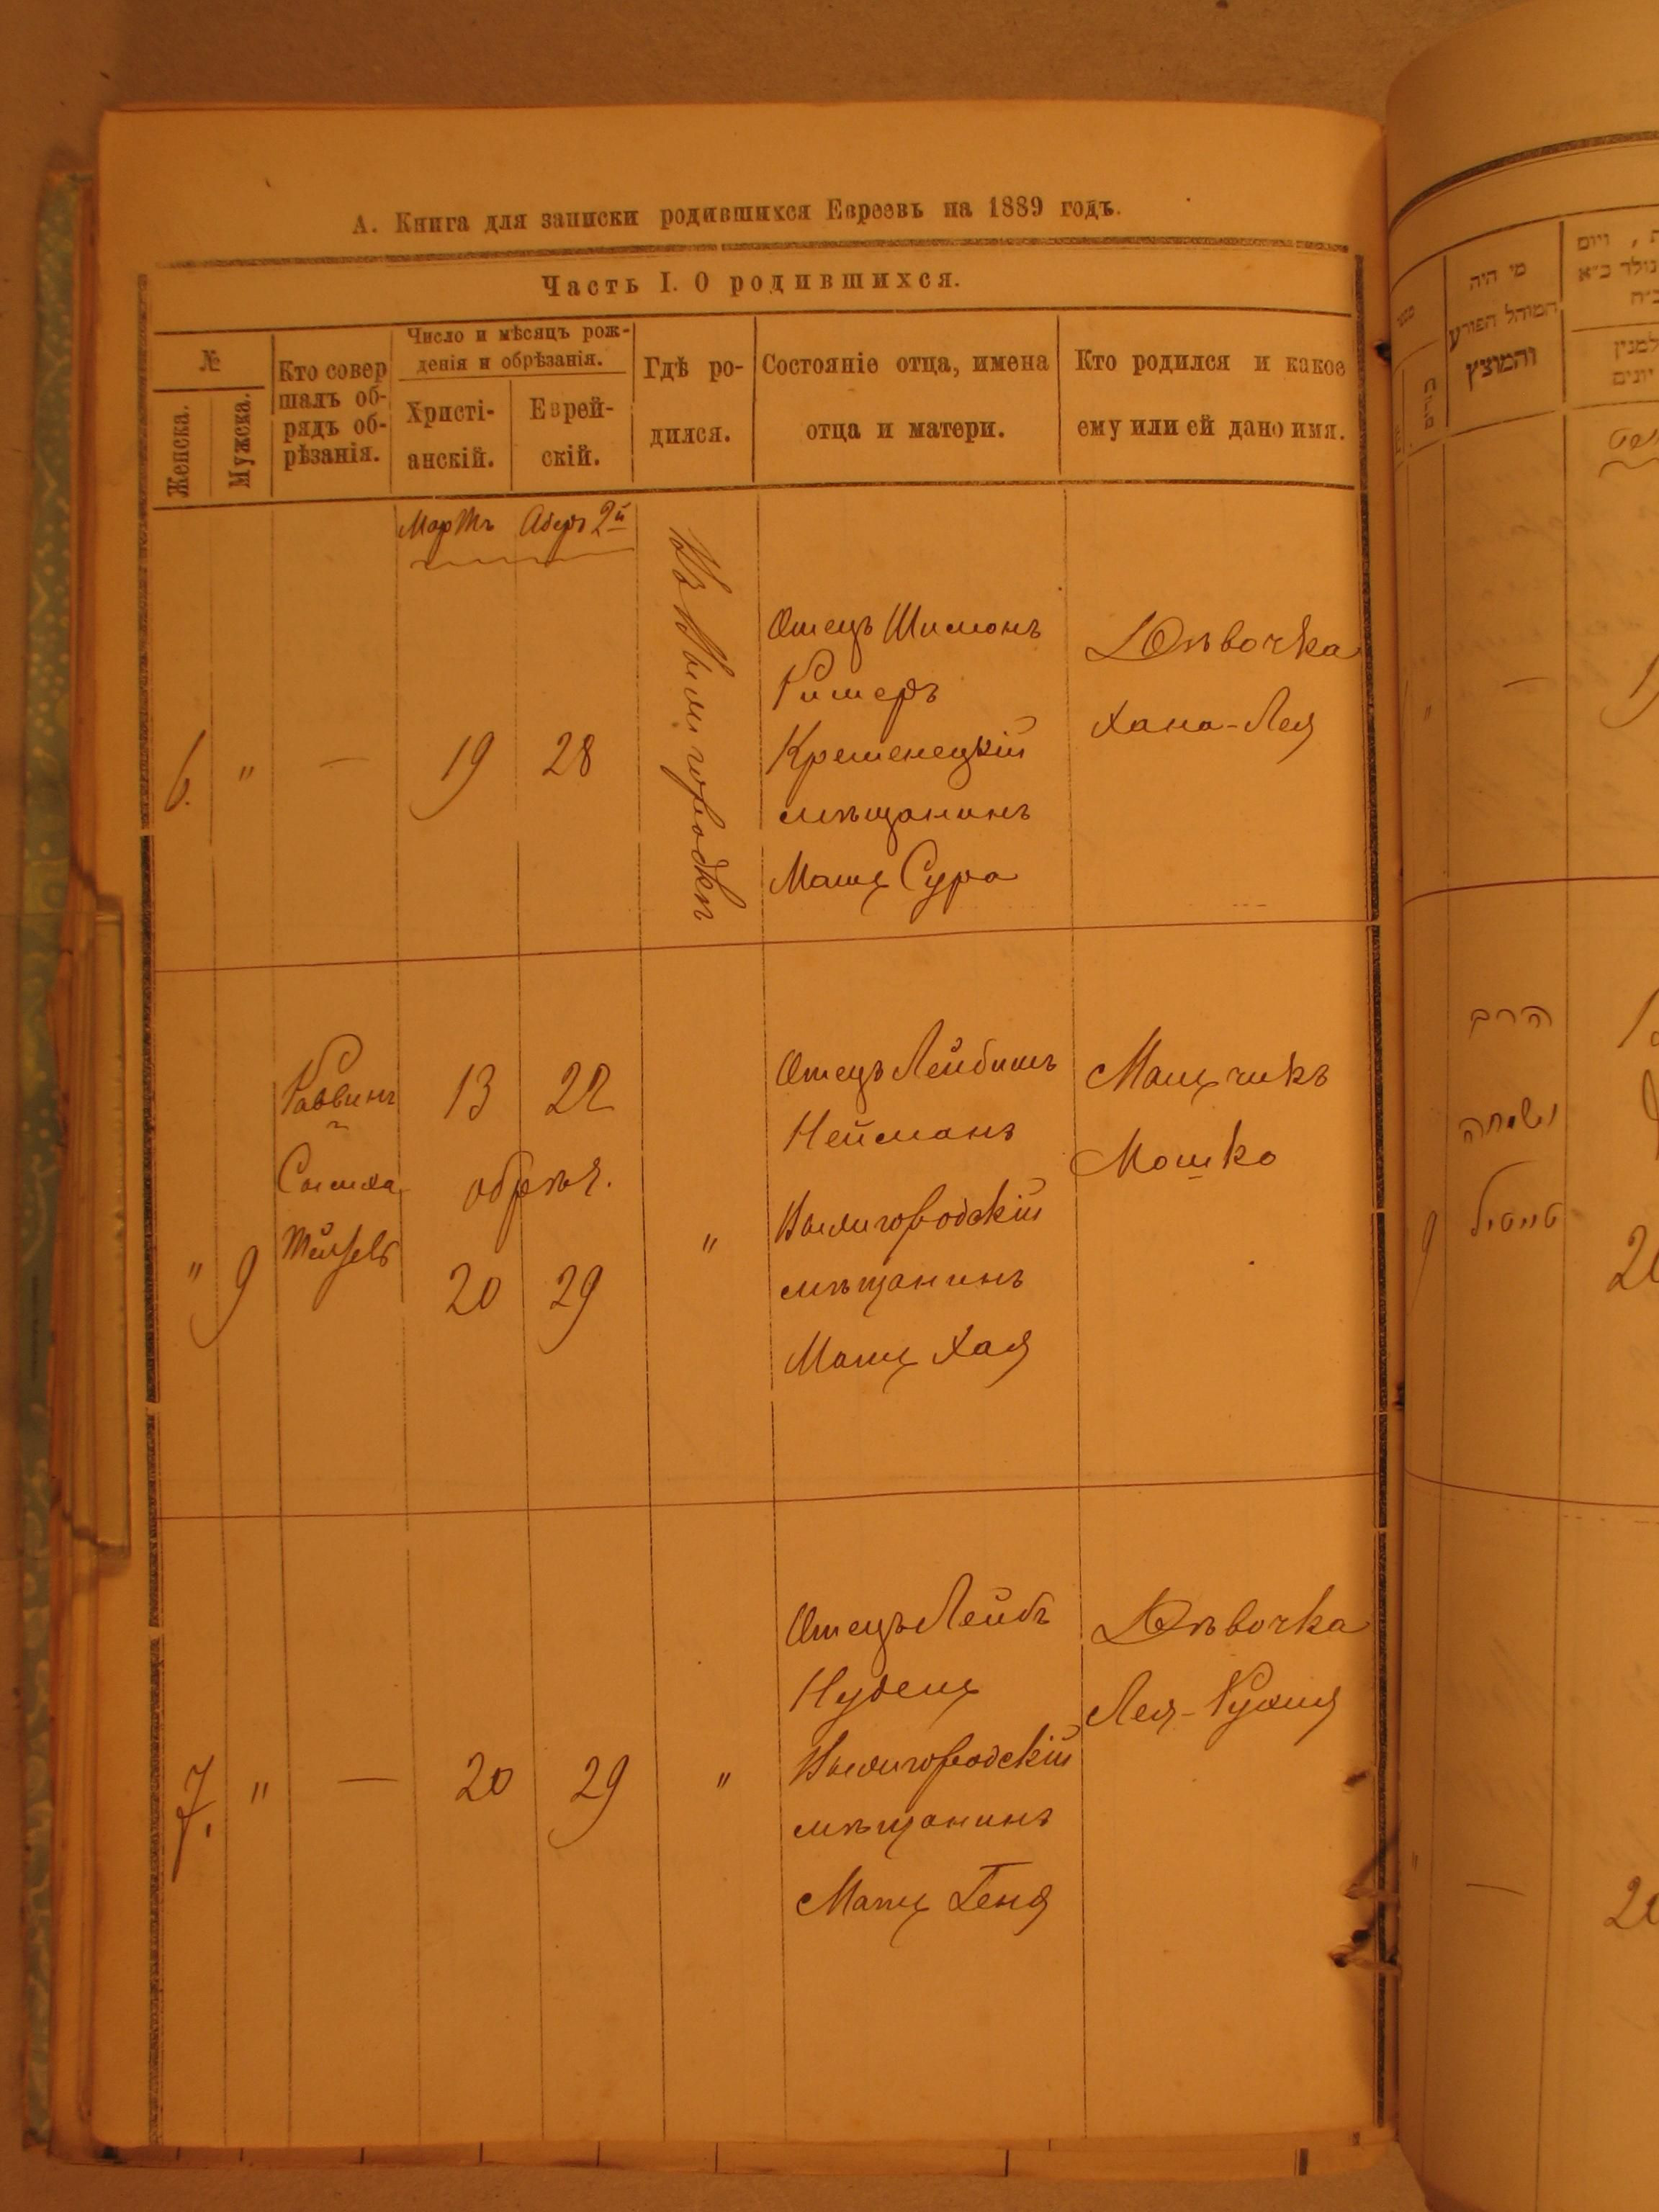 А. Книга для записки родившихся Евреевъ на 1889 годъ.
Часть I. О родившихся.
№
Женска.
Мужска.
Кто совер
шалъ об-
рядъ об-
рѣзанія.
Число и мѣсяцъ рож-
денія и обрѣзанія.
Христі-
анскій.
Еврей-
скій.
Гдѣ ро-
дился.
Состояніе отца, имена
отца и матери.
Кто родился и какое
ему или ей дано имя.
Мартъ Адеръ 2й
6. " — 19 28
Отецъ Шимонъ
Кременецкій
мѣщанинъ
Мать Сура
Дѣвочка
Хана-Лея
" 9
Раввинъ
Симха
13 22
обрѣз.
20 29
"
Отецъ Лейбишъ
Нейманъ
Вышгородскій
мѣщанинъ
Мать Хая
Мальчикъ
Мошко
7. " — 20 29 "
Отецъ Лейбъ
Нудель
Вышгородскій
мѣщанинъ
Мать Геня
Дѣвочка
Лея-Рухля
מי היה
המוהל הפורע
והמוצץ
הרב
שמחה
טייטיל